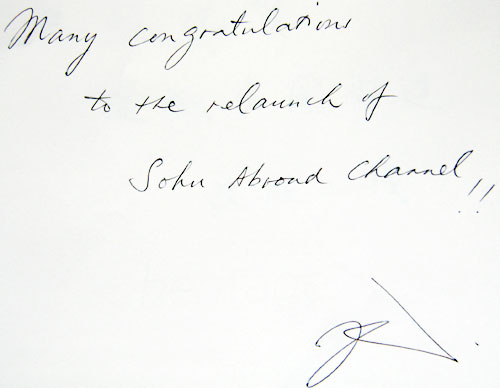 Many congratulations
to the relaunch of
Sohu Abroad Channel!!